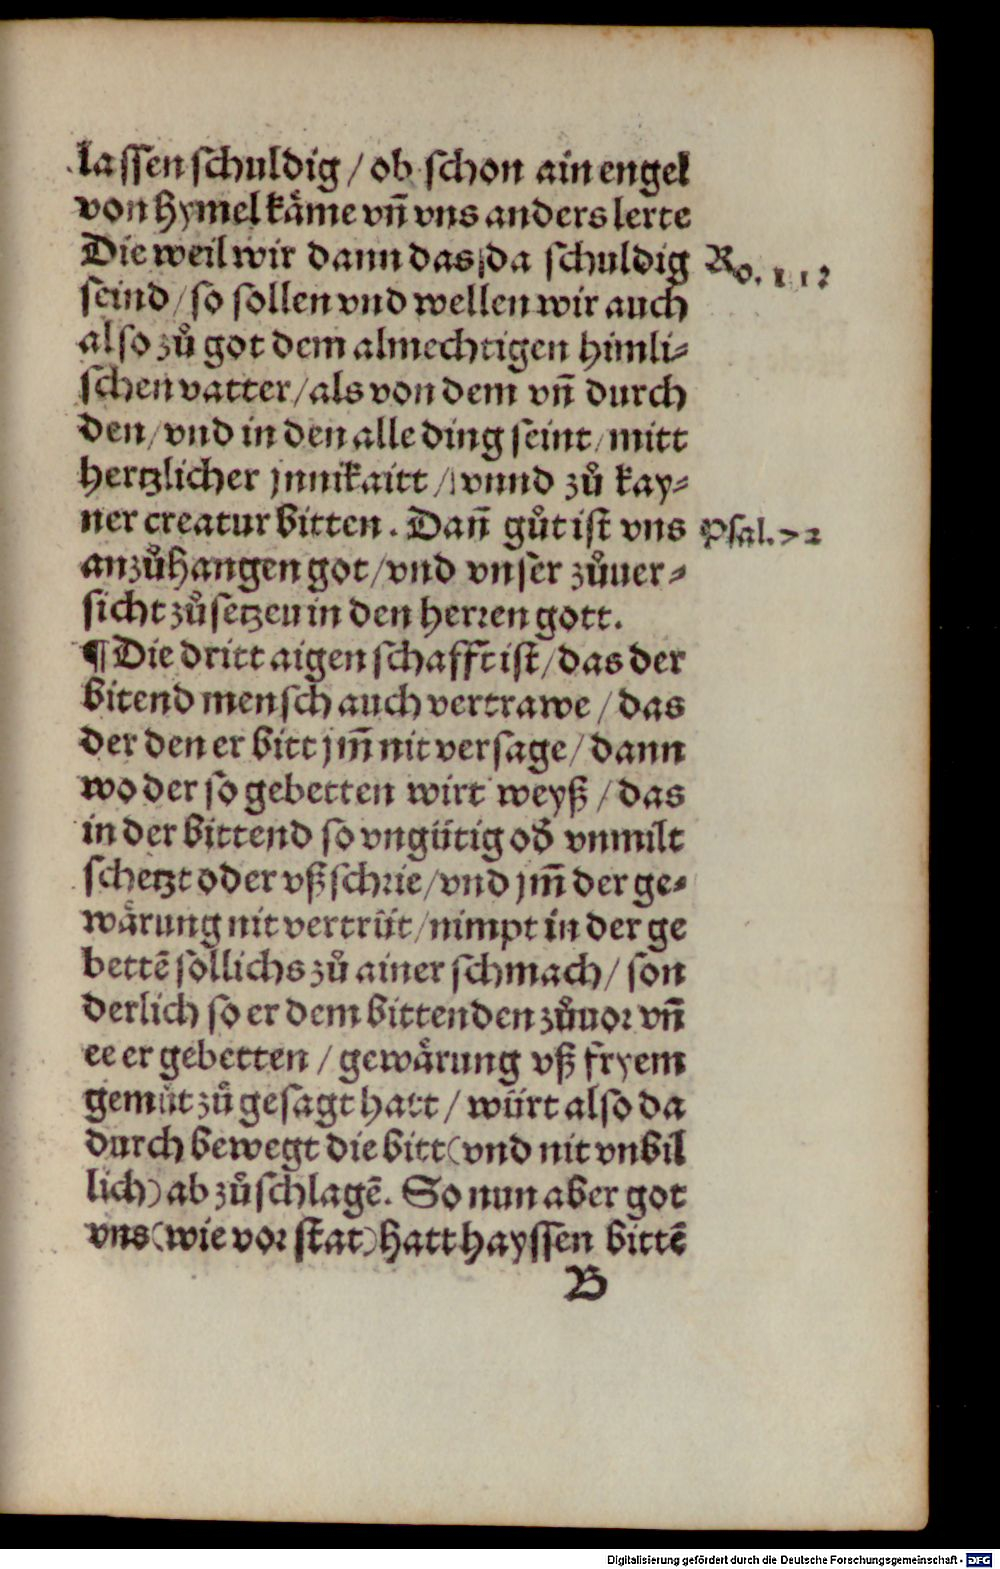 lassen schuldig / ob schon ain engel
von hymel kåme vn̄ vns anders lerte
Die weil wir dann das da schuldig
Ro. 11
seind / so sollen vnd wellen wir auch
also zů got dem almechtigen himli⸗
schen vatter / als von dem vn̄ durch
den / vnd in den alle ding seint / mitt
hertzlicher jnnikaitt / vnnd zů kay⸗
ner creatur bitten. Dan̄ gůt ist vns
Psal. 72
anzůhangen got / vnd vnser zůuer⸗
sicht zůsetzen in den herren gott.
¶ Die dritt aigenschafft ist / das der
bitend mensch auch vertrawe / das
der den er bitt jm̄ nit versage / dann
wo der so gebetten wirt weyß / das
in der bittend so vngütig od̛ vnmilt
schetzt oder vßschrie / vnd jm̄ der ge⸗
wårung nit vertrüt / nimpt in der ge
bettē söllichs zů ainer schmach / son
derlich so er dem bittenden zůuor vn̄
ee er gebetten / gewårung vß fryem
gemüt zů gesagt hatt / würt also da
durch bewegt die bitt (vnd nit vnbil
lich) ab zůschlagē. So nun aber got
vns (wie vor stat) hatt hayssen bittē
B
Digitalisierung gefördert durch die Deutsche Forschungsgemeinschaft - DFG